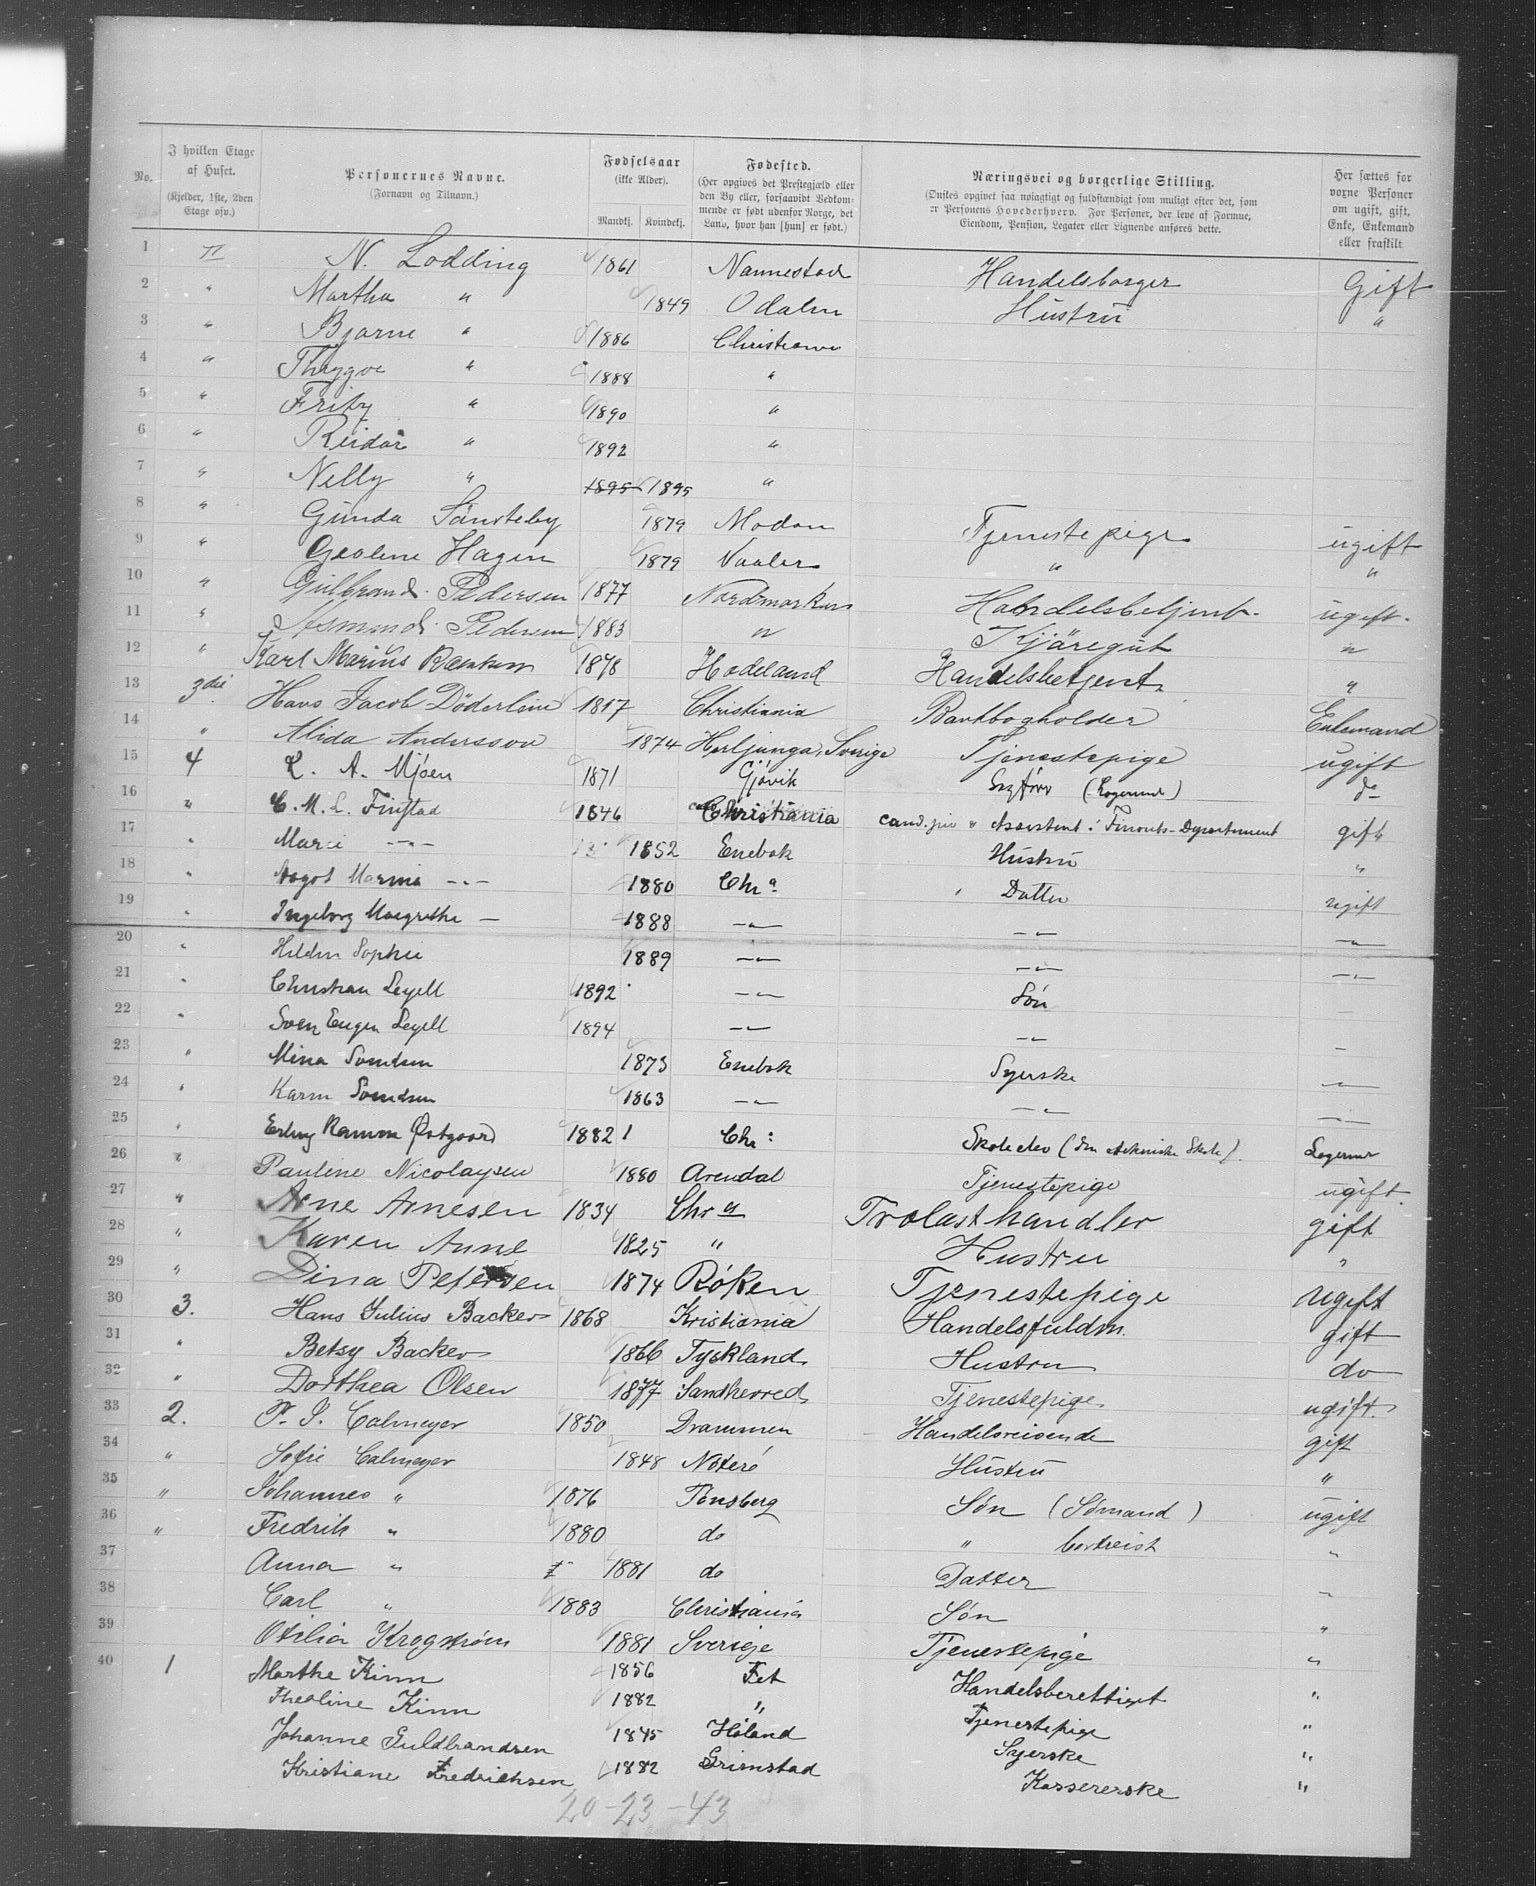 No.
I hvilken Etage af Huset.
(Kjelder, 1ste, 2den Etage osv.)
Personernes Navne.
(Fornavn og Tilnavn.)
Fødselsaar
(ikke Alder).
Mandkj. Kvindekj.
Fødested.
(Her opgives det Prestegjæld eller den By eller, forsaavidt Vedkommende er født udenfor Norge, det Land, hvor han [hun] er født.)
Næringsvei og borgerlige Stilling.
(Ønskes opgivet saa nøiagtigt og fuldstændigt som muligt efter det, som er Personens Hovederhverv. For Personer, der leve af Formue, Eiendom, Pension, Legater eller Lignende anføres dette.
Her sættes for voxne Personer om ugift, gift, Enke, Enkemand eller fraskilt
1 II N. Lodding 1861 Nannestad Handelsborger Gift
2 " Martha " 1849 Odalen Hustru "
3 " Bjarne " 1886 Christiania
4 " Thrygve " 1888 "
5 " Fritz " 1890 "
6 " Reidar " 1892 "
7 " Nelly " 1895 1895 "
8 " Gunda Sønsteby 1879 Modum Tjenestepige ugift
9 " Geoline Hagen 1879 Vaaler " "
10 " Gulbrand Pedersen 1877 Nordmarken Handelsbetjent ugift.
11 " Asmund Pedersen 1883 " Kjøregut "
12 " Karl Marius 1878 Hadeland Handelsbetjent "
13 3die Hans Jacob Döderlein 1817 Christiania Bankbogholder Enkemand
14 " Alida Andersson 1874 Herljunga, Sverige Tjenestepige ugift
15 4 L. A. Mjøen 1871 Gjøvik (Logerende) do
16 " C. M. L. Finstad 1846 Christiania Assistent i Finants-Departement gift
17 " Marie -"- 1852 Enebak Hustru "
18 " Aagot Marine -"- 1880 Chr a Datter ugift
19 " Ingeborg Margrethe - 1888 -"- -"- -"-
20 " Hilda Sophie 1889 -"- -"- -"-
21 " Christian Leyell 1892 -"- Søn -
22 " Sven Eugen Leyell 1894 -"- -"- -
23 " Mina 1873 Enebak Syerske -"-
24 " Karen 1863 -"- -"- -"-
25 " Erling Østgaard 1882 Chr: Skoleelev (den tekniske Skole). Logerende
26 " Pauline Nicolaysen 1880 Arendal Tjenestepige ugift.
27 " Arne Arnesen 1834 Chr a Trælasthandler gift
28 " Karen Anne 1825 " Hustru "
29 " Dina Petersen 1874 Røken Tjenestepige ugift
30 3. Hans Julius Backer 1868 Kristiania Handelsfuldm. gift
31 " Betsy Backer 1866 Tyskland Hustru do
32 " Dorthea Olsen 1877 Sandherred Tjenestepige. ugift.
33 2. P. J. Calmeyer 1850 Drammen Handelsreisende gift
34 " Sofie Calmeyer 1848 Nøterø Hustru "
35 " Johannes " 1876 Tønsberg Søn (Sømand) ugift
36 " Fredrik " 1880 do " bortreist "
37 Anna " 1881 do Datter "
38 Carl " 1883 Christiania Søn "
39 Otilia Krogstrøm 1881 Sverige Tjenestepige "
40 1 Marthe Kinn 1856 Fet Handelsberettiget "
Thealine Kinn 1882 " Tjenestepige "
Johanne Guldbrandsen 1845 Høland Syerske "
Kristiane Fredrichsen 1882 Grimstad Kassererske "
20-23-43